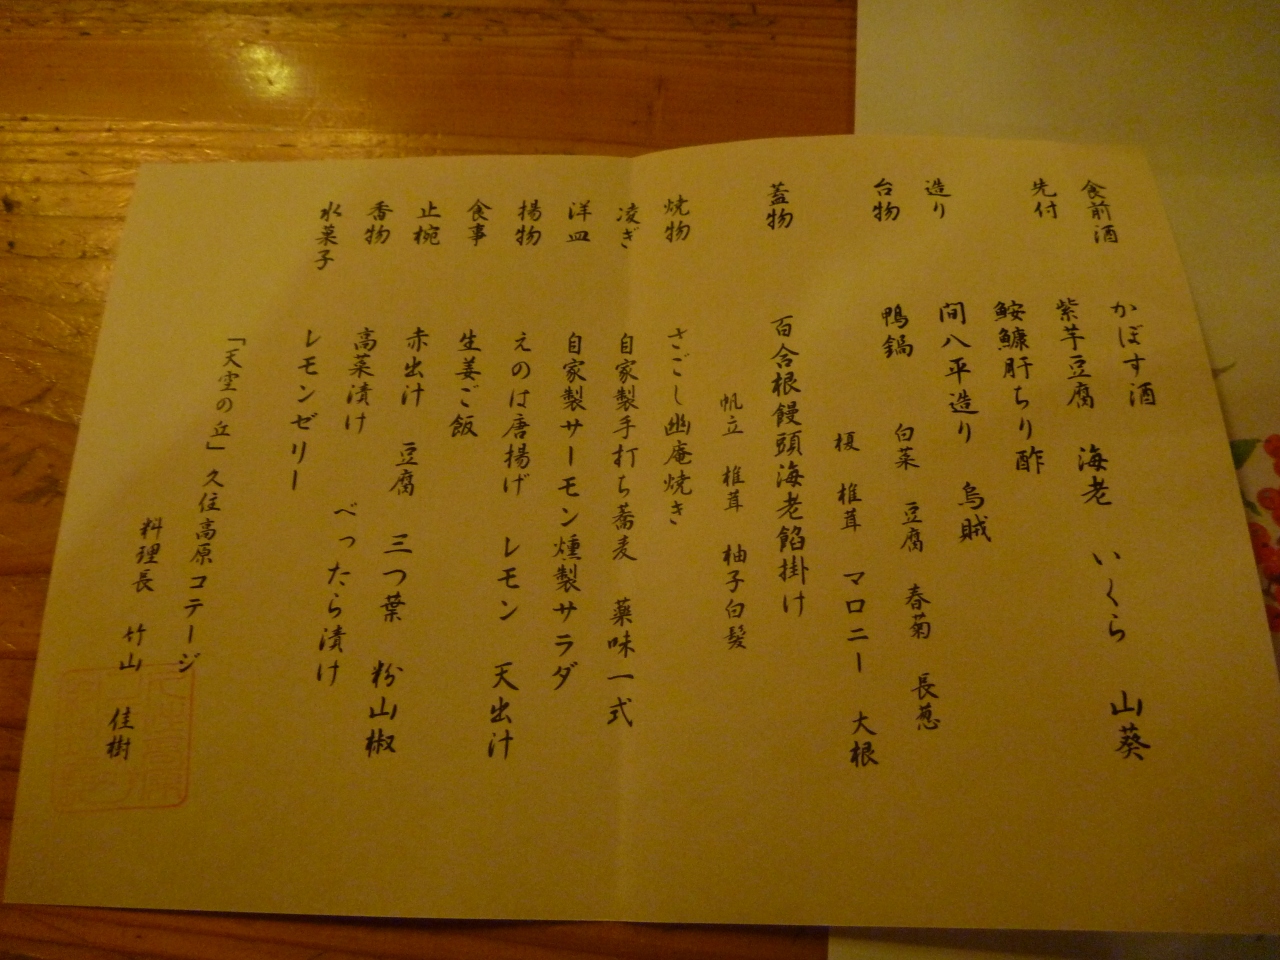 食前酒 かぼす酒
先付 紫芋豆腐 海老 いくら 山葵
鮟鱇肝ちり酢
造り 間八平造り 烏賊
台物 鴨鍋 白菜 豆腐 春菊 長葱
榎 椎茸 マロニー 大根
蓋物 百合根饅頭海老餡掛け
帆立 椎茸 柚子白髪
焼物 さごし幽庵焼き
凌ぎ 自家製手打ち蕎麦 薬味一式
洋皿 自家製サーモン燻製サラダ
揚物 えのは唐揚げ レモン 天出汁
食事 生姜ご飯
止椀 赤出汁 豆腐 三つ葉 粉山椒
香物 高菜漬け べったら漬け
水菓子 レモンゼリー
「天空の丘」久住高原コテージ
料理長 竹山 佳樹